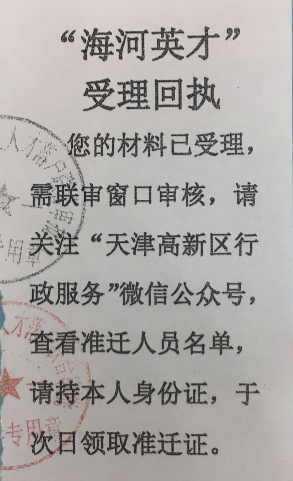 “海河英才”
受理回执
您的材料已受理，
需联审窗口审核，请
关注“天津高新区行
政服务”微信公众号，
查看准迁人员名单，
请持本人身份证，于
次日领取准迁证。
专用章